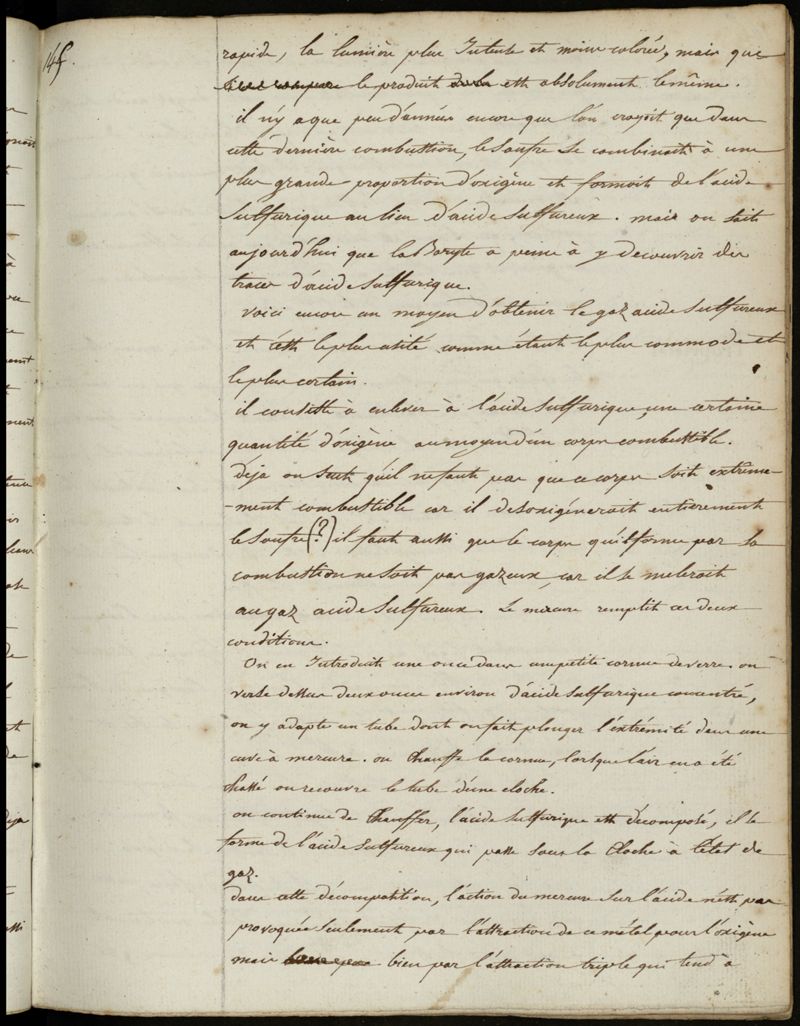 145.
rapide, la lumière plus Intense et moins colorée, mais que
le produit de la est absolument le même.
il n'y a que peu d'années encore que l'on croyoit que dans
cette dernière combustion, le soufre se combinoit à une
plus grande proportion d'oxigène et formoit de l'acide
sulfurique au lieu d'acide sulfureux. mais on sait
aujourd'hui que la Baryte a peine à y decouvrir des
traces d'acide sulfurique.
voici encore un moyen d'obtenir le gaz acide sulfureux
et c'est le plus usité comme étant le plus commode et
le plus certain.
il consiste à enlever à l'acide sulfurique, une certaine
quantité d'oxigène au moyen d'un corps combustible.
déja on sent qu'il ne faut pas que ce corps soit extrême-
-ment combustible car il desoxigéneroit entierement
le soufre (?) il faut aussi que le corps qu'il forme par sa
combustion ne soit pas gazeux, car il se meleroit
au gaz acide sulfureux. Le mercure remplit ces deux
conditions.
On en Introduit une once dans une petite cornue de verre. on
verse dessus deux onces environ d'acide sulfurique concentré,
on y adapte un tube dont on fait plonger l'éxtrémité dans une
cuve à mercure. on chauffe la cornue, lorsque l'air en a été
chassé on recouvre le tube d'une cloche.
on continue de chauffer, l'acide sulfurique est décomposé, il se
forme de l'acide sulfureux qui passe sous la cloche à l'état de
gaz.
dans cette décomposition, l'action du mercure sur l'acide n'est pas
provoquée seulement par l'attraction de ce métal pour l'oxigène
mais bien par l'attraction triple qui tend à